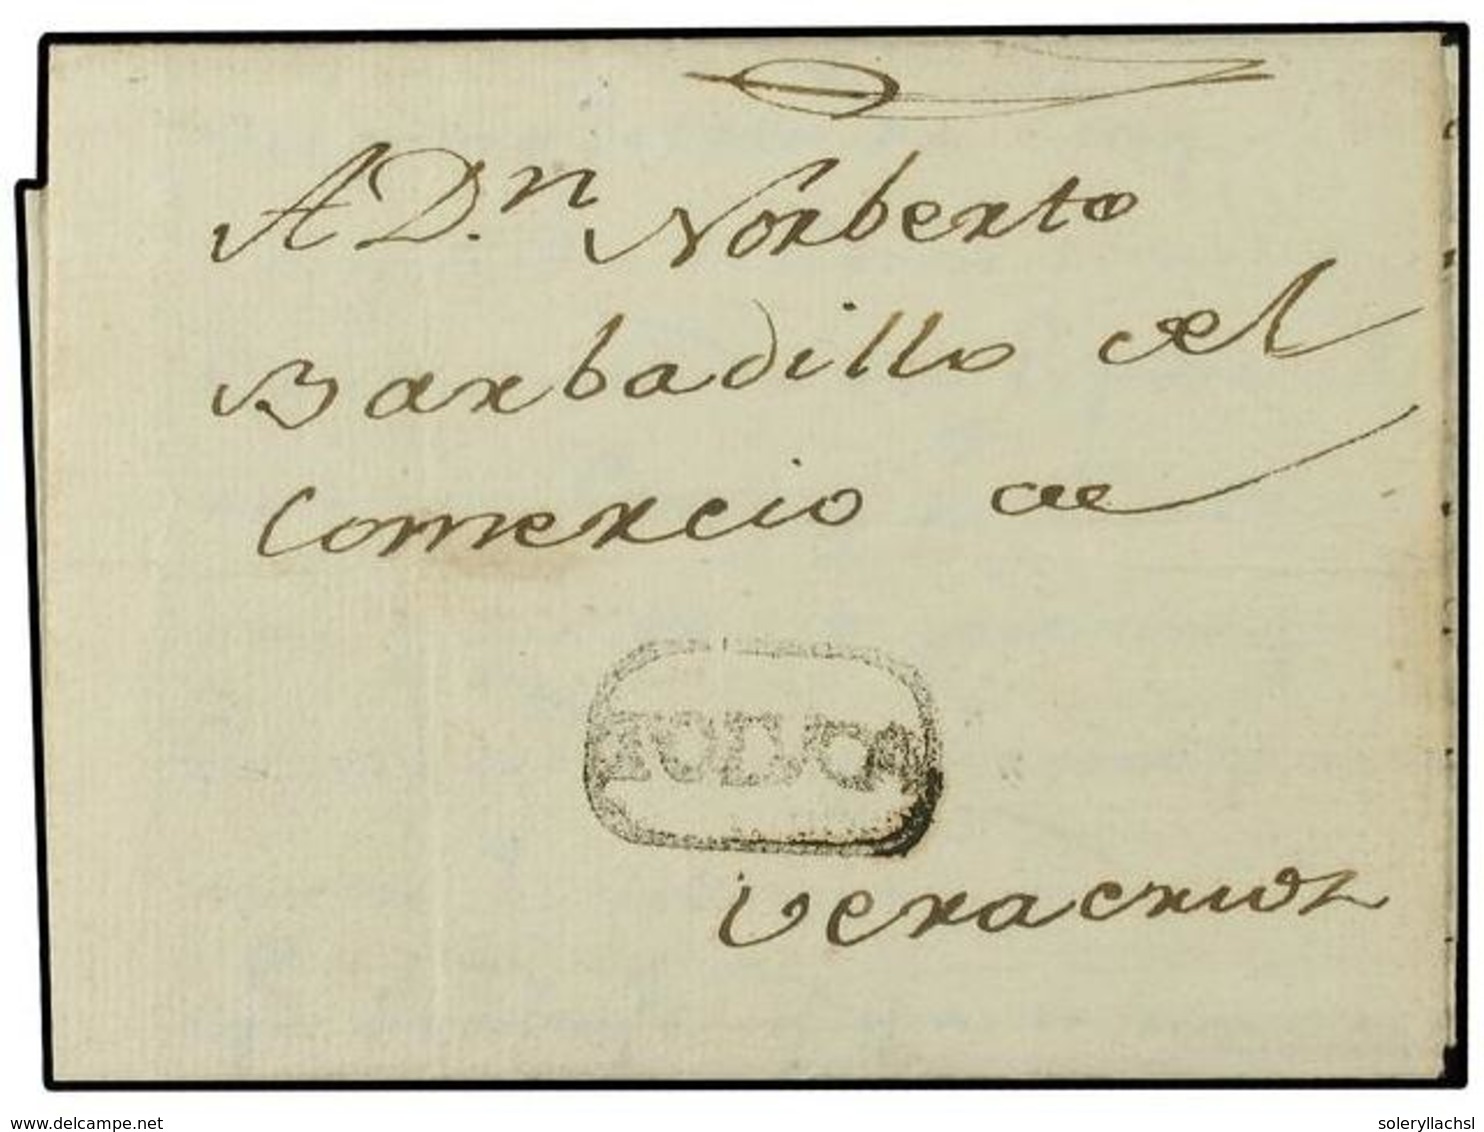 A D.n Norberto
Barbadillo del
Comercio de
Veracruz
delcampe.net
soleryllachsl